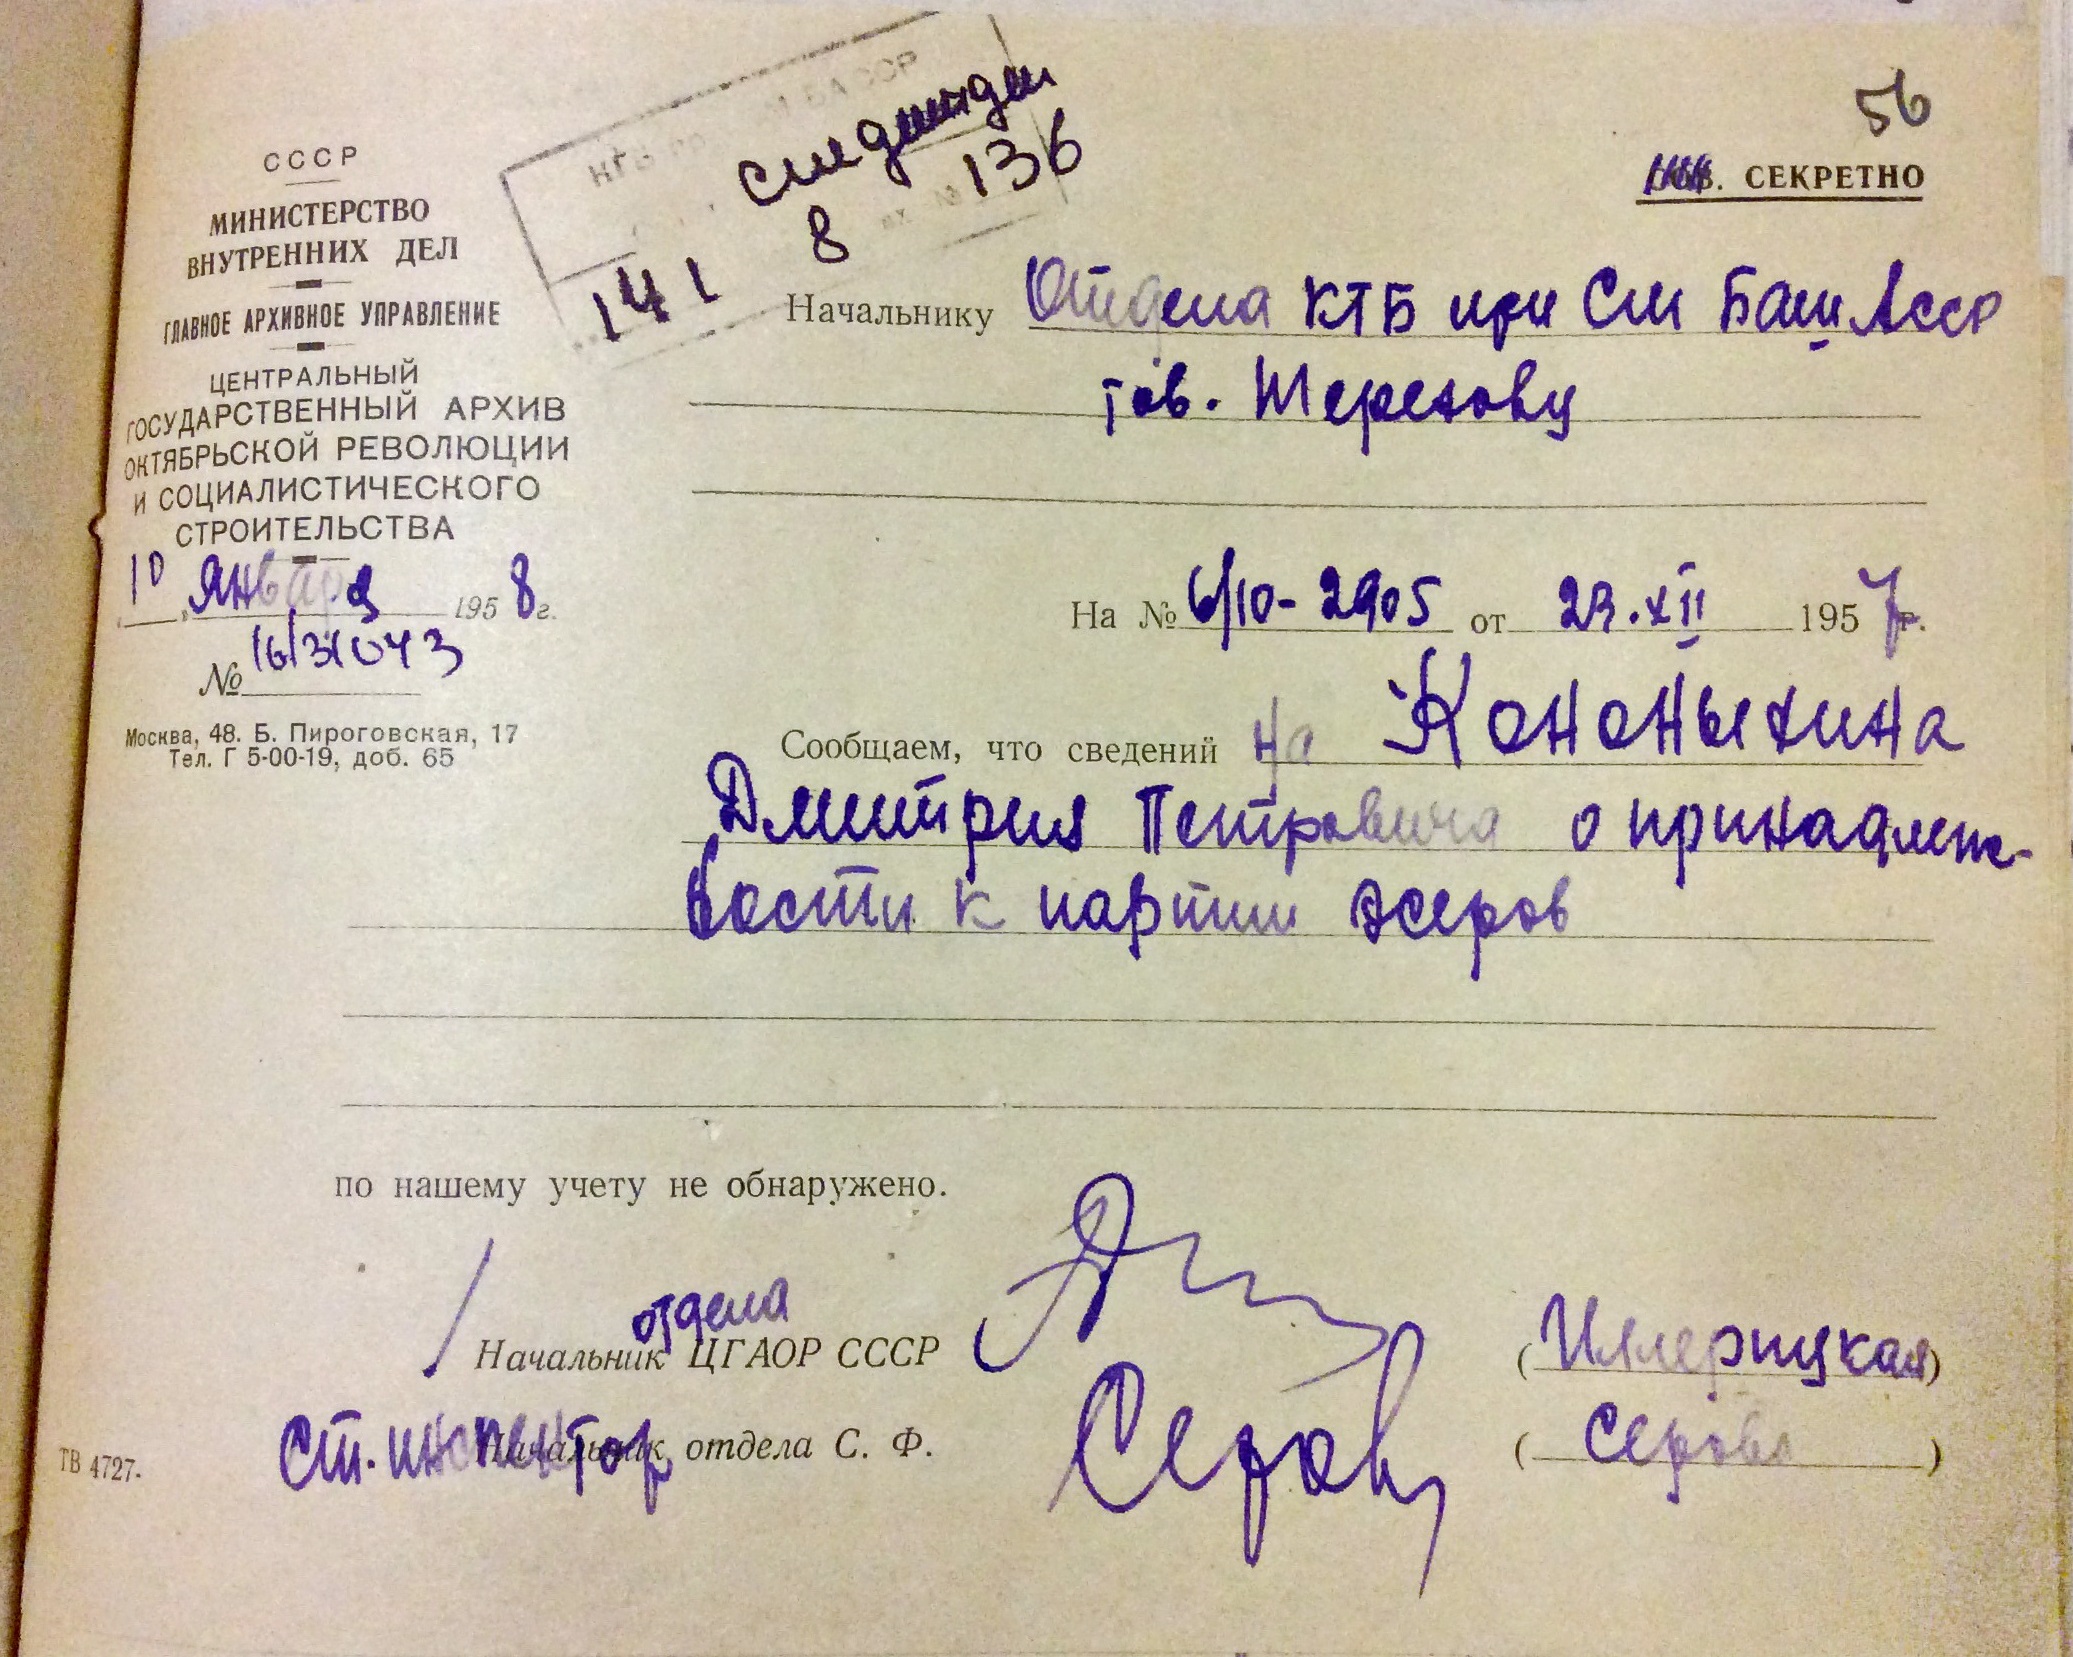 56
СЕКРЕТНО
СССР
МИНИСТЕРСТВО
ВНУТРЕННИХ ДЕЛ
ГЛАВНОЕ АРХИВНОЕ УПРАВЛЕНИЕ
ЦЕНТРАЛЬНЫЙ
ГОСУДАРСТВЕННЫЙ АРХИВ
ОКТЯБРЬСКОЙ РЕВОЛЮЦИИ
И СОЦИАЛИСТИЧЕСКОГО
СТРОИТЕЛЬСТВА
10 января 1958 г.
№
Москва, 48. Б. Пироговская, 17
Тел. Г 5-00-19, доб. 65
136
8
141
Начальнику Отдела КГБ при См Баш Асср
тов.
На № 6/10-2905 от 1957 г.
Сообщаем, что сведений на Кононыхина
Дмитрия Петровича о принадлеж-
ности к партии эсеров
по нашему учету не обнаружено.
отдела
Начальник ЦГАОР СССР (Иллерицкая)
Ст. инспектор отдела С. Ф. Серов (Серова)
ТВ 4727.